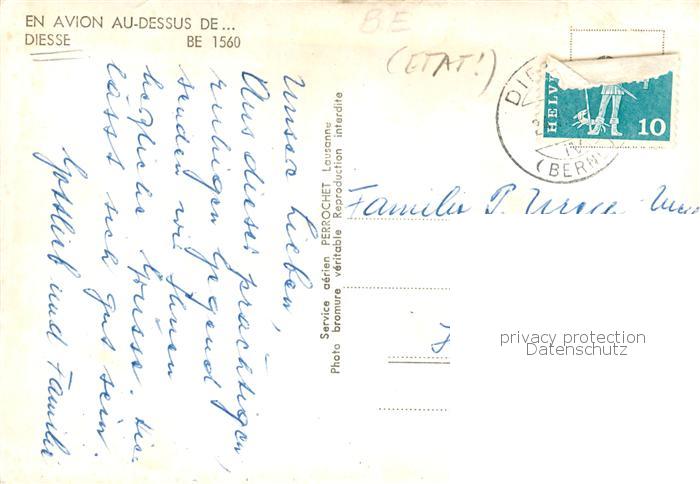 EN AVION AU-DESSUS DE...
DIESSE BE 1560
BE
(ETAT!)
Unsere Lieben,
Aus dieser prächtigen,
ruhigen Gegend
senden wir Ihnen
herzliche Grüsse. Hier
lässt sich gut sein.
Gottlieb und Familie
Service aérien PERROCHET Lausanne
Photo bromure véritable Reproduction interdite
DIE
(BERN)
HELVE
10
Familie P.
privacy protection
Datenschutz